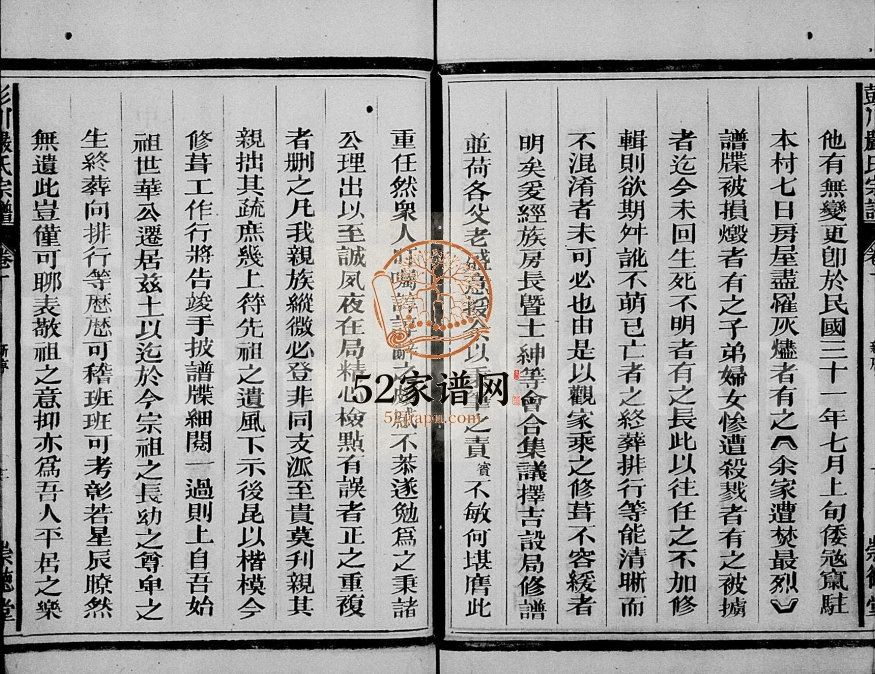 他有無變更卽於民國三十一年七月上旬倭寇竄駐
本村七日房屋盡罹灰燼者有之《余家遭焚最烈》
譜牒被損燬者有之子弟婦女慘遭殺戮者有之被擄
者迄今未回生死不明者有之長此以往任之不加修
輯則欲期舛訛不萌已亡者之終葬排行等能清晰而
不混淆者未可必也由是以觀家乘之修葺不容緩者
明矣爰經族房長暨士紳等會合集議擇吉設局修譜
並荷各父老誠意授余以主之責賓不敏何堪膺此
重任然衆人之不恭遂勉爲之秉諸
公理出以至誠夙夜在局精心檢點有誤者正之重複
者删之凡我親族縱微必登非同支派至貴莫刊親其
親拙其疏庶幾上符先祖之遺風下示後昆以楷模今
修葺工作行將告竣手披譜牒細閱一過則上自吾始
祖世華公遷居兹土以迄於今宗祖之長幼之尊卑之
生終葬向排行等歷歷可稽班班可考彰若星辰瞭然
無遺此豈僅可聊表敬祖之意抑亦爲吾人平居之樂
彭川嚴氏宗譜
卷一
崇德堂
52家谱网
52jiapu.com